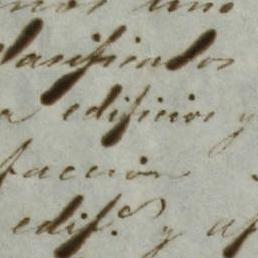 uno
clasificados
a edificios y
facción
edif.º y